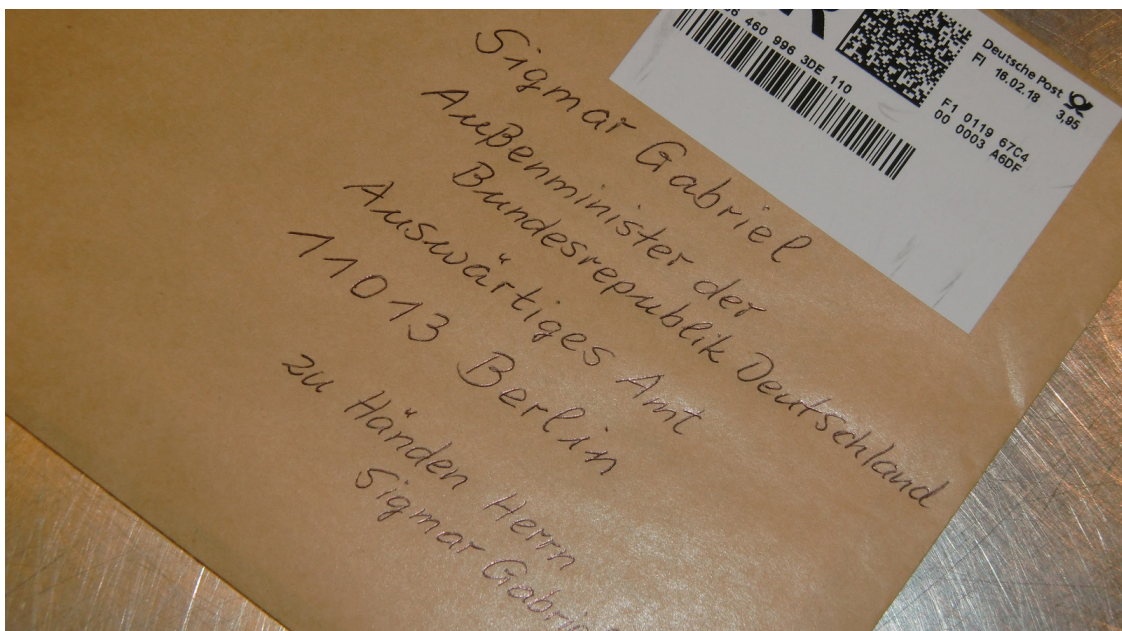 Sigmar Gabriel
Außenminister der
Bundesrepublik Deutschland
Auswärtiges Amt
11013 Berlin
zu Händen Herrn
Sigmar
R
460 996 3DE 110
Deutsche Post
FI 16.02.18 3,95
F1 0119 67C4
00 0003 A6DF